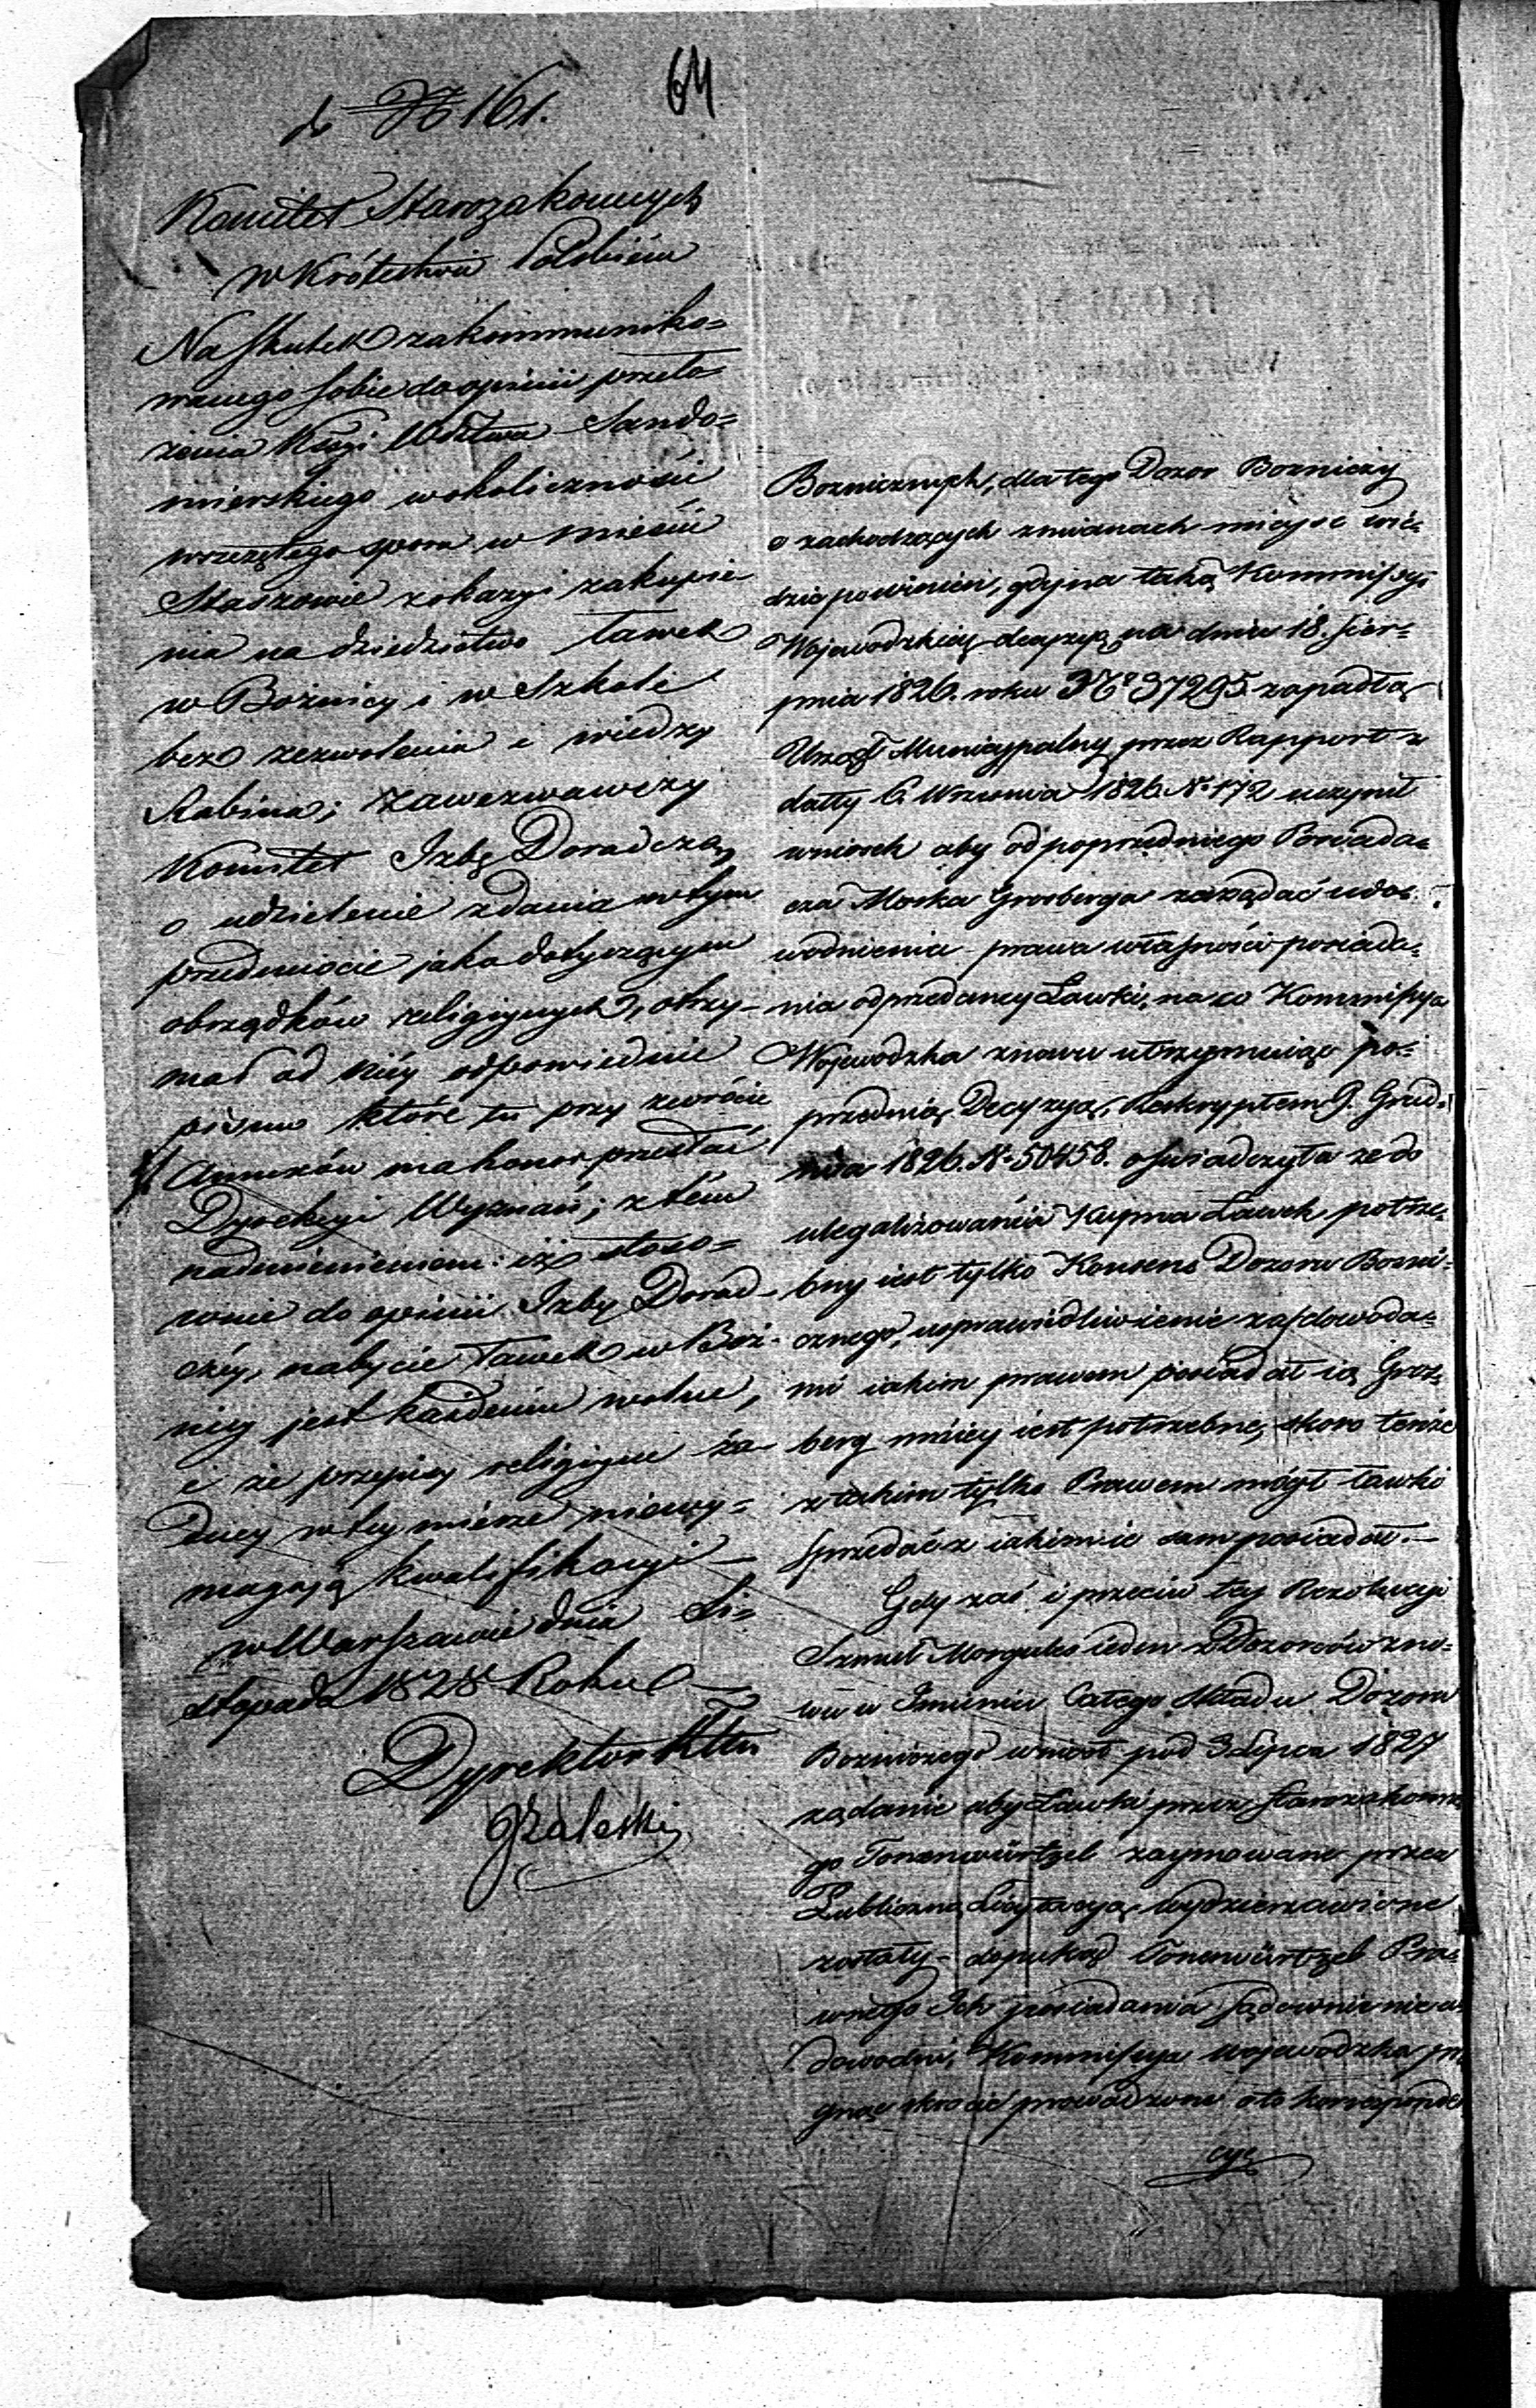 64
do № 161.
Komitet Starozakonnych
w Królestwie Polskiem
Na skutek zakommuniko=
wanego sobie do opinii przeło=
żenia Kssyi Wdztwa Sando=
mierskiego w okoliczności
wszczętego sporu w mieście
Staszowie z okazyi zakupie
nia na dziedzictwo ławek
w Bożnicy i w Szkole
bez zezwolenia i wiedzy
Rabina; zawezwawszy
Komitet Izbę Doradczą
o udzielenie zdania w tym
przedmiocie jako dotyczącym
obrządków religijnych, otrzy-
mał od niéy odpowiednie
pismo które tu przy zwrócie
Annexów ma honor przesłać
Dyrekcyi Wyznań; z tém
nadmienieniem: iż stoso=
wnie do opinii Izby Dorad-
czéy, nabycie ławek w Boż-
nicy jest każdemu wolne,
i że przepisy religijne ża-
dney w tey mierze niewy=
magają kwalifikacyi —
w Warszawie dnia Li=
stopada 1828 Roku —
Dyrektor
JZaleski
Boznicznych, dla tego Dozor Bozniczy
o zachodzących zmianach mieysc wie-
dzie powinien, gdy na taką Kommissyi
Wojewodzkiey decyzyą na dniu 18. Sier-
pnia 1826. roku No 37295 zapadłą
Urząd Municypalny przez Rapport z
datty 6. Września 1826 No 172 uczynił
wniosek aby od poprzedniego Posiada=
cza Moska Grosberga zażądać udo=
wodnienia prawa własności posiada=
nia odprzedaney Ławki, na co Kommissya
Wojewodzka znowu utrzymując po=
przednią Decyzyą, Reskryptem 9. Grud=
nia 1826. No 50458. oświadczyła ze do
ulegalizowania Kupna Ławek potrze-
bny iest tylko Konsens Dozoru Bozni-
cznego, usprawiedliwienie zaś dowoda=
mi iakim prawem posiadał ią Gros-
berg mniey iest potrzebne, skoro tenże
z takim tylko Prawem mógł ławki
sprzedać z iakiemie sam posiadał.—
Gdy zaś i przeciw tey Rezolucyi
Szmul Morgules ieden z Dozorców zno=
wu w Imieniu Całego Składu Dozoru
Bozniczego wniosł pod 3 Lipca 1827
ządanie aby Ławki przez Starozakonne
go Tonenwürtzel zaymowane przez
Publiczną Licytacyą wydzierzawione
zostały - dopukąd Tonenwürtzel Pra=
wnego Ich posiadania sądownie nie u=
dowodni, Kommissya wojewodzka pra
gnąc skrocić prowadzone o to korresponden
cye